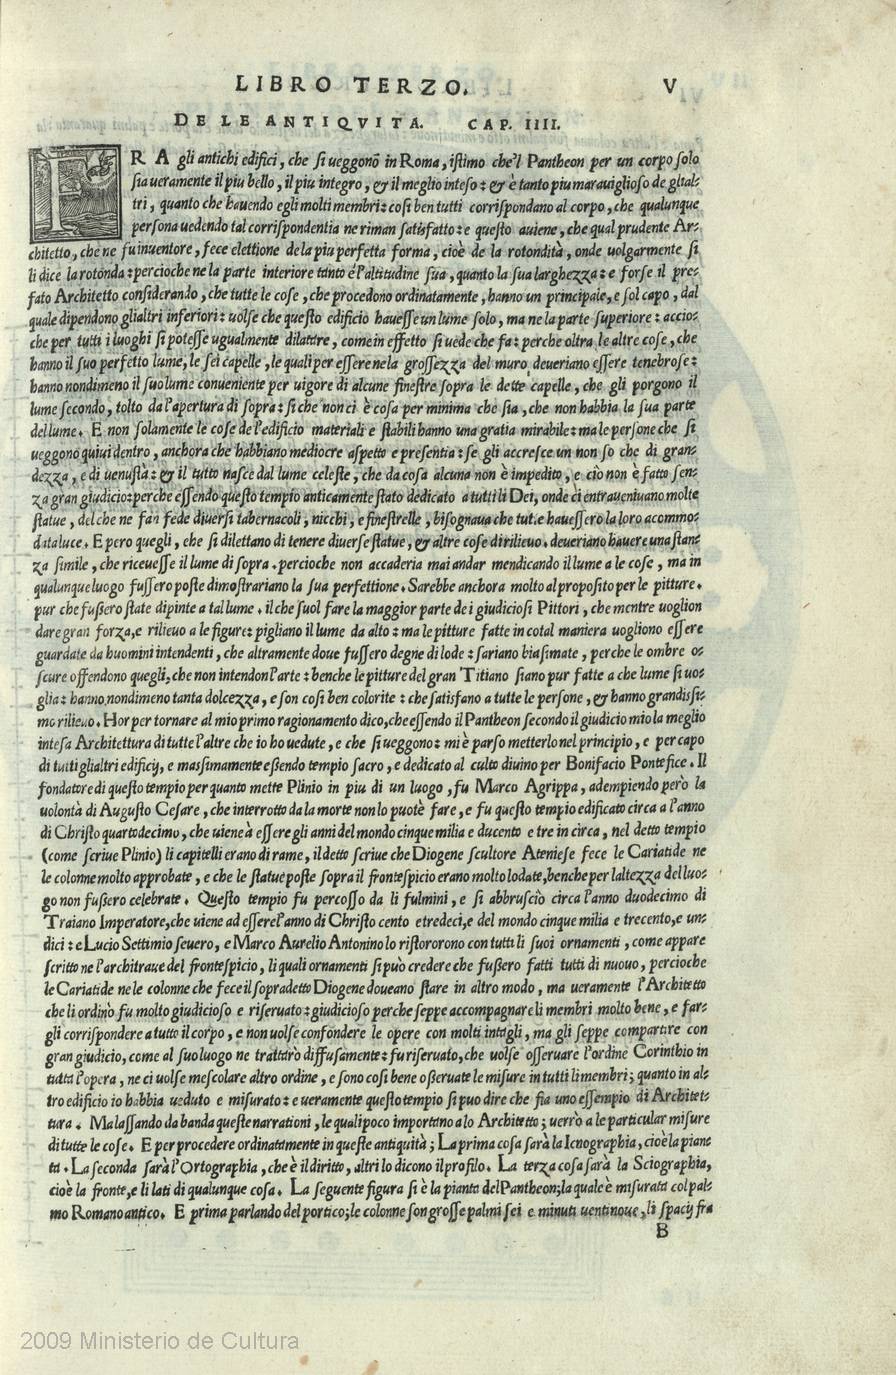 LIBRO TERZO. V
DE LE ANTIQVITA. CAP. IIII.
FRA gli antichi edifici, che ſi ueggono in Roma, iſtimo che'l Pantheon per un corpo ſolo
ſia ueramente il piu bello, il piu integro, & il meglio inteſo: & è tanto piu marauiglioſo de glial⸗
tri, quanto che hauendo egli molti membri: coſi ben tutti corriſpondano al corpo, che qualunque
perſona uedendo tal corriſpondentia ne riman ſatisfatto: e queſto auiene, che qual prudente Ar⸗
chitetto, che ne fu inuentore, fece elettione de la piu perfetta forma, cioè de la rotondità, onde uolgarmente ſi
li dice la rotonda: percioche ne la parte interiore tanto è l'altitudine ſua, quanto la ſua larghezza: e forſe il pre⸗
fato Architetto conſiderando, che tutte le coſe, che procedono ordinatamente, hanno un principale, e ſol capo, dal
quale dipendono glialtri inferiori: uolſe che queſto edificio haueſſe un lume ſolo, ma ne la parte ſuperiore: accio⸗
che per tutti i luoghi ſi poteſſe ugualmente dilatare, come in effetto ſi uede che fa: perche oltra le altre coſe, che
hanno il ſuo perfetto lume, le ſei capelle, le quali per eſſere ne la groſſezza del muro deueriano eſſere tenebroſe:
hanno nondimeno il ſuo lume conueniente per uigore di alcune fineſtre ſopra le dette capelle, che gli porgono il
lume ſecondo, tolto da l'apertura di ſopra: ſi che non ci è coſa per minima che ſia, che non habbia la ſua parte
del lume. E non ſolamente le coſe de l'edificio materiali e ſtabili hanno una gratia mirabile: ma le perſone che ſi
ueggono quiui dentro, anchora che habbiano mediocre aſpetto e preſentia: ſe gli accreſce un non ſo che di gran⸗
dezza, e di uenuſtà: & il tutto naſce dal lume celeſte, che da coſa alcuna non è impedito, e ciò non è fatto ſen⸗
za gran giudicio: perche eſſendo queſto tempio anticamente ſtato dedicato a tutti li Dei, onde ci entraueniuano molte
ſtatue, del che ne fan fede diuerſi tabernacoli, nicchi, e fineſtrelle, biſognaua che tutte haueſſero la loro accommo⸗
data luce. E pero quegli, che ſi dilettano di tenere diuerſe ſtatue, & altre coſe di rilieuo. deueriano hauere una ſtan⸗
za ſimile, che riceueſſe il lume di ſopra. percioche non accaderia mai andar mendicando il lume a le coſe, ma in
qualunque luogo fuſſero poſte dimoſtrariano la ſua perfettione. Sarebbe anchora molto al propoſito per le pitture.
pur che fußero ſtate dipinte a tal lume. il che ſuol fare la maggior parte de i giudicioſi Pittori, che mentre uoglion
dare gran forza, e rilieuo a le figure: pigliano il lume da alto: ma le pitture fatte in cotal maniera uogliono eſſere
guardate da huomini intendenti, che altramente doue fuſſero degne di lode: ſariano biaſimate, perche le ombre o⸗
ſcure offendono quegli, che non intendon l'arte: benche le pitture del gran Titiano ſiano pur fatte a che lume ſi uo⸗
glia: hanno nondimeno tanta dolcezza, e ſon coſi ben colorite: che ſatisfano a tutte le perſone, & hanno grandiſſi⸗
mo rilieuo. Hor per tornare al mio primo ragionamento dico, che eſſendo il Pantheon ſecondo il giudicio mio la meglio
inteſa Architettura di tutte l'altre che io ho uedute, e che ſi ueggono: mi è parſo metterlo nel principio, e per capo
di tutti gli altri edificij, e maſſimamente eßendo tempio ſacro, e dedicato al culto diuino per Bonifacio Pontefice. Il
fondatore di queſto tempio per quanto mette Plinio in piu di un luogo, fu Marco Agrippa, adempiendo però la
uolontà di Auguſto Ceſare, che interrotto da la morte non lo puotè fare, e fu queſto tempio edificato circa a l'anno
di Chriſto quartodecimo, che uiene à eſſere gli anni del mondo cinque milia e ducento e tre in circa, nel detto tempio
(come ſcriue Plinio) li capitelli erano di rame, il detto ſcriue che Diogene ſcultore Atenieſe fece le Cariatide ne
le colonne molto approbate, e che le ſtatue poſte ſopra il fronteſpicio erano molto lodate, benche per laltezza del luo⸗
go non fußero celebrate. Queſto tempio fu percoſſo da li fulmini, e ſi abbruſciò circa l'anno duodecimo di
Traiano Imperatore, che uiene ad eſſere l'anno di Chriſto cento e tredeci, e del mondo cinque milia e trecento, e un⸗
dici: e Lucio Settimio ſeuero, e Marco Aurelio Antonino lo riſtororono con tutti li ſuoi ornamenti, come appare
ſcritto ne l'architraue del fronteſpicio, li quali ornamenti ſi può credere che fußero fatti tutti di nuouo, percioche
le Cariatide ne le colonne che fece il ſopradetto Diogene doueano ſtare in altro modo, ma ueramente l'Architetto
che li ordinò fu molto giudicioſo e riſeruato: giudicioſo perche ſeppe accompagnare li membri molto bene, e far⸗
gli corriſpondere a tutto il corpo, e non uolſe confondere le opere con molti intagli, ma gli ſeppe compartire con
gran giudicio, come al ſuo luogo ne trattarò diffuſamente: fu riſeruato, che uolſe oſſeruare l'ordine Corinthio in
tutta l'opera, ne ci uolſe meſcolare altro ordine, e ſono coſi bene oßeruate le miſure in tutti li membri; quanto in al⸗
tro edificio io habbia ueduto e miſurato: e ueramente queſto tempio ſi puo dire che ſia uno eſſempio di Architet⸗
tura. Ma laſſando da banda queſte narrationi, le quali poco importano a lo Architetto; uerrò a le particular miſure
di tutte le coſe. E per procedere ordinatamente in queſte antiquità; La prima coſa ſarà la Icnographia, cioè la pian⸗
ta. La ſeconda ſarà l'Ortographia, che è il diritto, altri lo dicono il profilo. La terza coſa ſarà la Sciographia,
cioè la fronte, e li lati di qualunque coſa. La ſeguente figura ſi è la pianta del Pantheon; la quale è miſurata col pal⸗
mo Romano antico. E prima parlando del portico; le colonne ſon groſſe palmi ſei e minuti uentinoue, li ſpacij fra
B
2009 Ministerio de Cultura